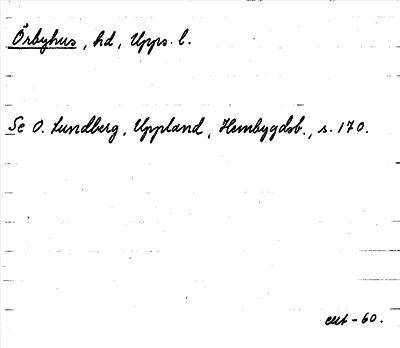 Örbyhus, hd, Upps. l.
Se O. Lundberg, Uppland, Hembygdsb., s. 170.
-60.